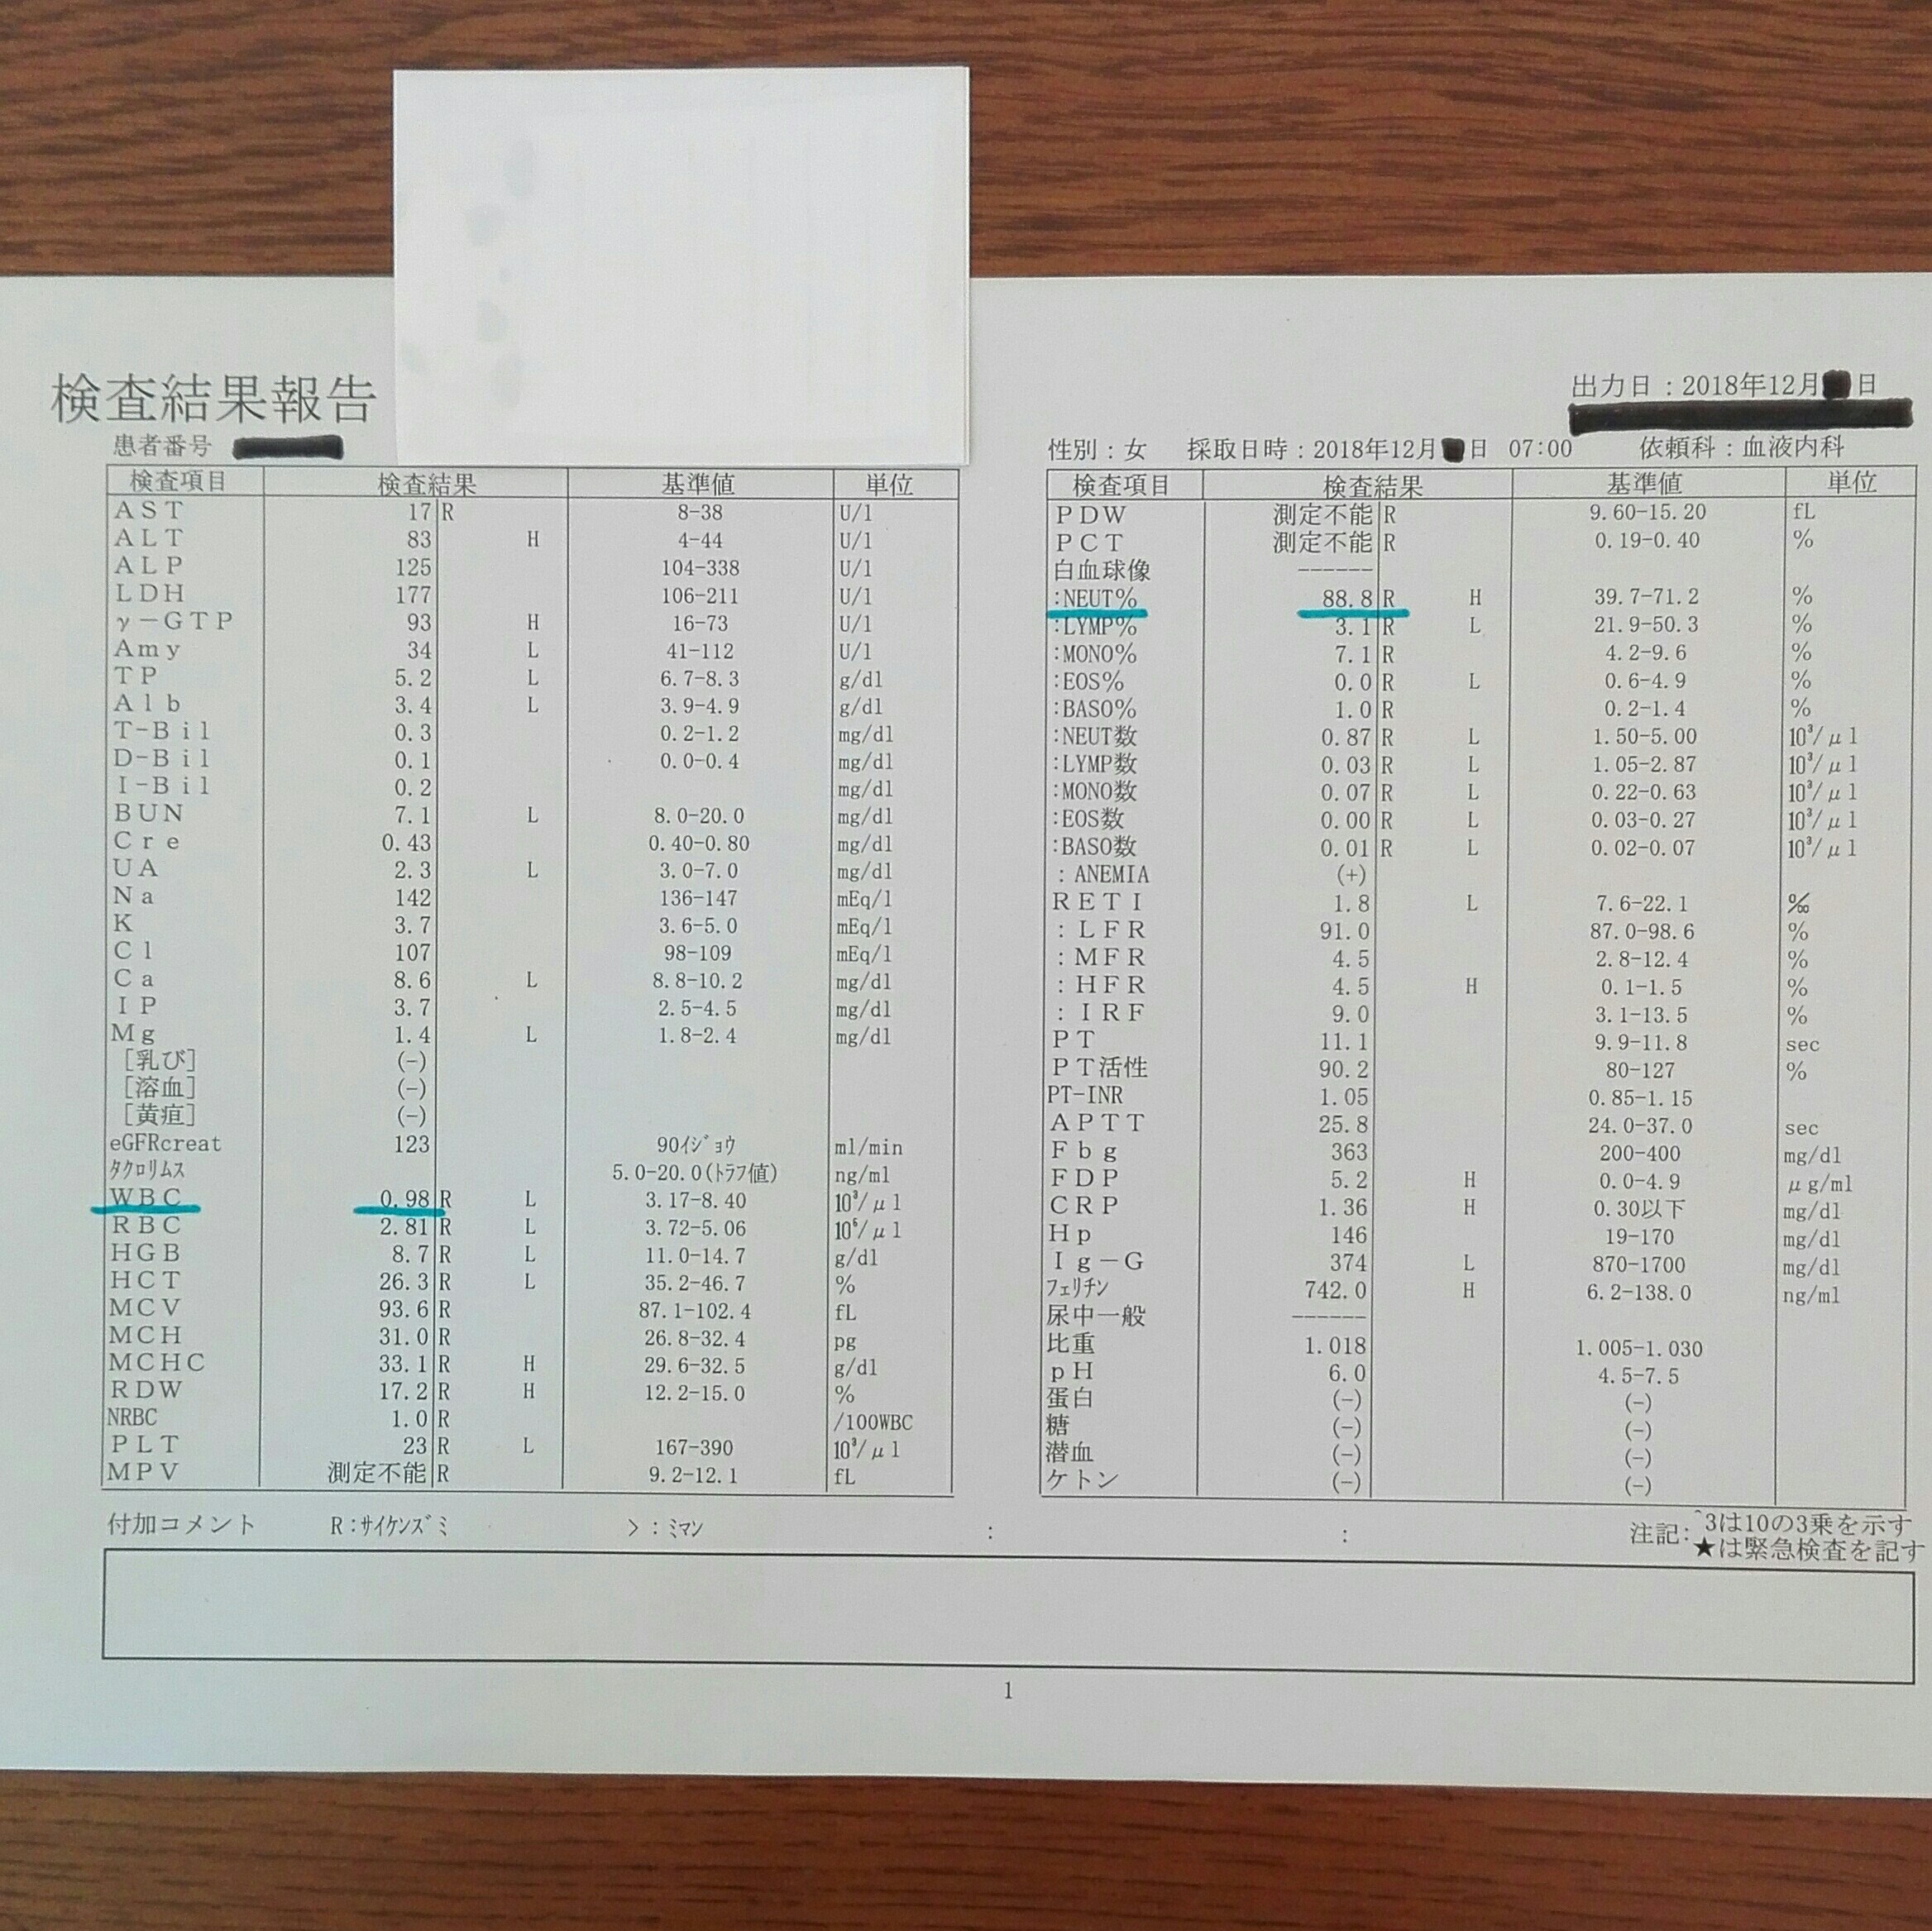 検査結果報告
出力日：2018年12月 日
患者番号
性別：女 採取日時：2018年12月 日 07:00 依頼科：血液内科
検査項目 検査結果 基準値 単位
AST 17 R 8-38 U/l
ALT 83 H 4-44 U/l
ALP 125 104-338 U/l
LDH 177 106-211 U/l
γ-GTP 93 H 16-73 U/l
Amy 34 L 41-112 U/l
TP 5.2 L 6.7-8.3 g/dl
Alb 3.4 L 3.9-4.9 g/dl
T-Bil 0.3 0.2-1.2 mg/dl
D-Bil 0.1 0.0-0.4 mg/dl
I-Bil 0.2 mg/dl
BUN 7.1 L 8.0-20.0 mg/dl
Cre 0.43 0.40-0.80 mg/dl
UA 2.3 L 3.0-7.0 mg/dl
Na 142 136-147 mEq/l
K 3.7 3.6-5.0 mEq/l
Cl 107 98-109 mEq/l
Ca 8.6 L 8.8-10.2 mg/dl
IP 3.7 2.5-4.5 mg/dl
Mg 1.4 L 1.8-2.4 mg/dl
[乳び] (-)
[溶血] (-)
[黄疸] (-)
eGFRcreat 123 90ｲｼﾞｮｳ ml/min
ﾀｸﾛﾘﾑｽ 5.0-20.0(ﾄﾗﾌ値) ng/ml
WBC 0.98 R L 3.17-8.40 10³/μl
RBC 2.81 R L 3.72-5.06 10⁶/μl
HGB 8.7 R L 11.0-14.7 g/dl
HCT 26.3 R L 35.2-46.7 %
MCV 93.6 R 87.1-102.4 fL
MCH 31.0 R 26.8-32.4 pg
MCHC 33.1 R H 29.6-32.5 g/dl
RDW 17.2 R H 12.2-15.0 %
NRBC 1.0 R /100WBC
PLT 23 R L 167-390 10³/μl
MPV 測定不能 R 9.2-12.1 fL
検査項目 検査結果 基準値 単位
PDW 測定不能 R 9.60-15.20 fL
PCT 測定不能 R 0.19-0.40 %
白血球像 ------
:NEUT% 88.8 R H 39.7-71.2 %
:LYMP% 3.1 R L 21.9-50.3 %
:MONO% 7.1 R 4.2-9.6 %
:EOS% 0.0 R L 0.6-4.9 %
:BASO% 1.0 R 0.2-1.4 %
:NEUT数 0.87 R L 1.50-5.00 10³/μl
:LYMP数 0.03 R L 1.05-2.87 10³/μl
:MONO数 0.07 R L 0.22-0.63 10³/μl
:EOS数 0.00 R L 0.03-0.27 10³/μl
:BASO数 0.01 R L 0.02-0.07 10³/μl
:ANEMIA (+)
RETI 1.8 L 7.6-22.1 ‰
:LFR 91.0 87.0-98.6 %
:MFR 4.5 2.8-12.4 %
:HFR 4.5 H 0.1-1.5 %
:IRF 9.0 3.1-13.5 %
PT 11.1 9.9-11.8 sec
PT活性 90.2 80-127 %
PT-INR 1.05 0.85-1.15
APTT 25.8 24.0-37.0 sec
Fbg 363 200-400 mg/dl
FDP 5.2 H 0.0-4.9 μg/ml
CRP 1.36 H 0.30以下 mg/dl
Hp 146 19-170 mg/dl
Ig-G 374 L 870-1700 mg/dl
ﾌｪﾘﾁﾝ 742.0 H 6.2-138.0 ng/ml
尿中一般 ------
比重 1.018 1.005-1.030
pH 6.0 4.5-7.5
蛋白 (-) (-)
糖 (-) (-)
潜血 (-) (-)
ケトン (-) (-)
付加コメント R:ｻｲｹﾝｽﾞﾐ >:ﾐﾏﾝ : :
注記:^3は10の3乗を示す
★は緊急検査を記す
1